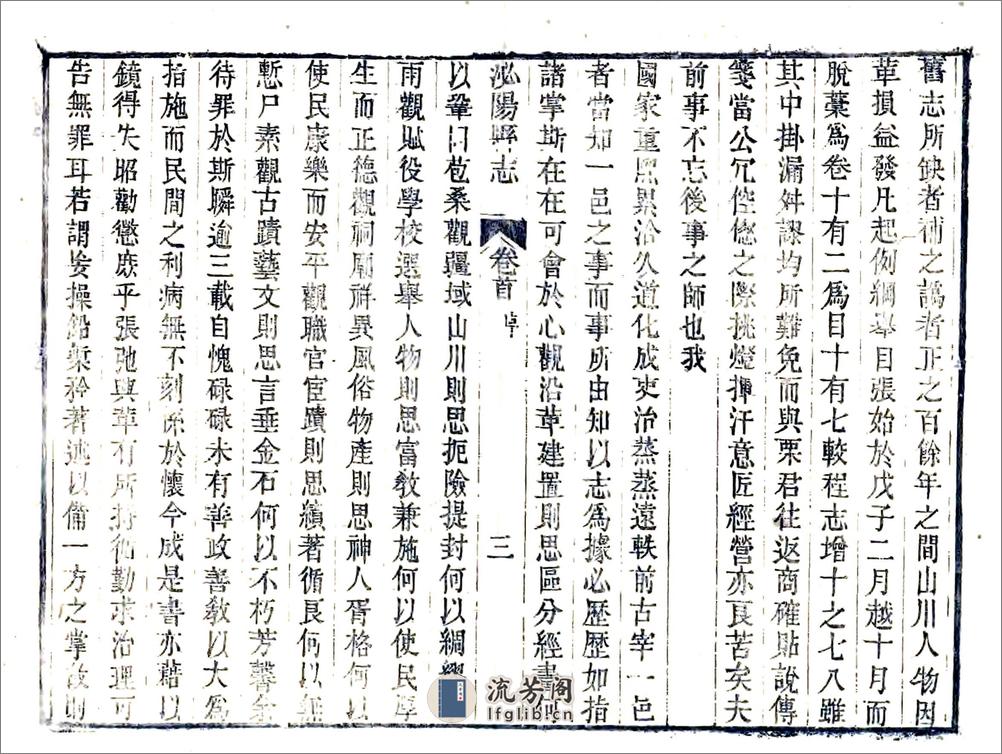 舊志所缺者補之譌者正之百餘年之間山川人物因
革損益發凡起例綱舉目張始於戊子二月越十月而
脫藁爲卷十有二爲目十有七較程志增十之七八雖
其中掛漏舛誤均所難免而與栗君往返商確貼說傳
箋當公冗倥傯之際挑燈揮汗意匠經營亦良苦矣夫
前事不忘後事之師也我
國家重熙累洽久道化成吏治蒸蒸遠軼前古宰一邑
者當知一邑之事而事所由知以志爲據必歷歷如指
諸掌斯在在可會於心觀沿革建置則思區分經畫何
泌陽縣志
卷首
三
以鞏固苞桑觀疆域山川則思扼險提封何以綢繆
雨觀賦役學校選舉人物則思富敎兼施何以使民厚
生而正德觀祠廟祥異風俗物產則思神人胥格何以
使民康樂而安平觀職官宦蹟則思績著循良何以無
慙尸素觀古蹟藝文則思言垂金石何以不朽芳馨余
待罪於斯瞬逾三載自愧碌碌未有善政善敎以大爲
指施而民間之利病無不刻 於懷今成是書亦藉以
鏡得失昭勸懲庶乎張弛與革有所持循勤求治理可
告無罪耳若謂妄操鉛槧矜著述以備一方之掌故則
流芳阁
lfglib.cn